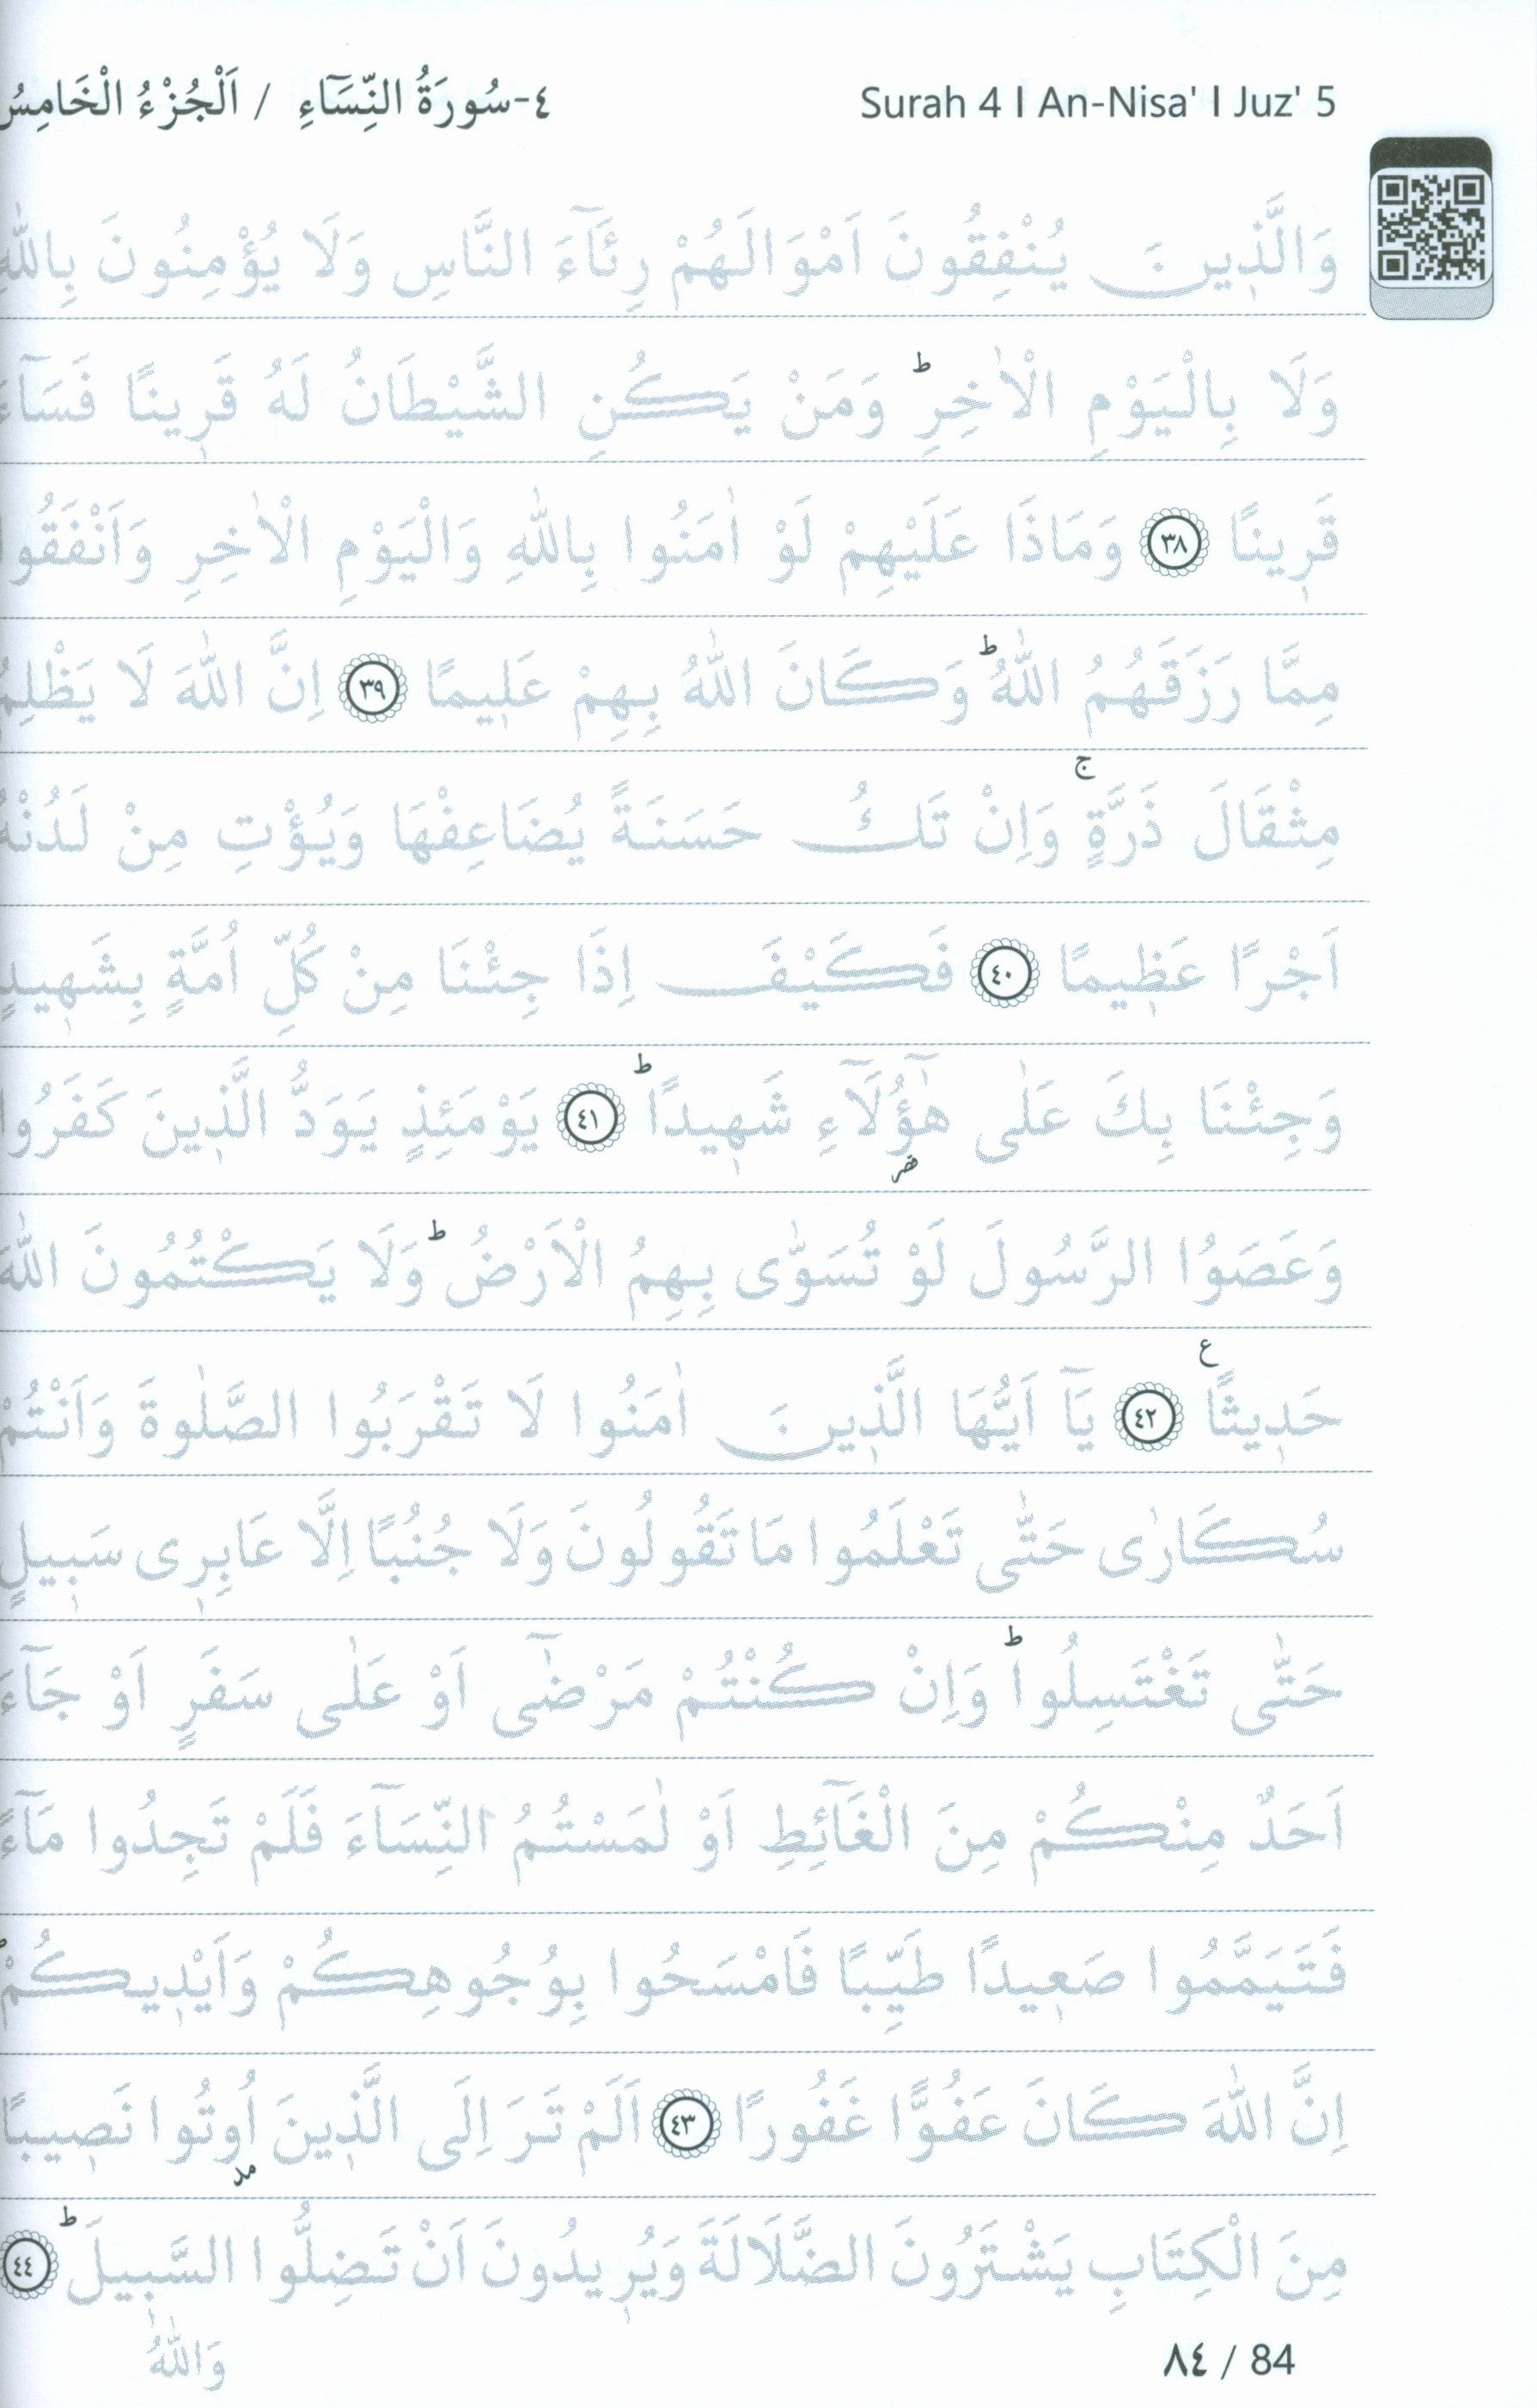 ٤-سُورَةُ النِّسَاءِ / اَلْجُزْءُ الْخَامِسُ
Surah 4 I An-Nisa' I Juz' 5
وَالَّذ۪ينَ يُنْفِقُونَ اَمْوَالَهُمْ رِئَٓاءَ النَّاسِ وَلَا يُؤْمِنُونَ بِاللّٰهِ
وَلَا بِالْيَوْمِ الْاٰخِرِۜ وَمَنْ يَكُنِ الشَّيْطَانُ لَهُ قَر۪ينًا فَسَٓاءَ
قَر۪ينًا ﴿٣٨﴾ وَمَاذَا عَلَيْهِمْ لَوْ اٰمَنُوا بِاللّٰهِ وَالْيَوْمِ الْاٰخِرِ وَاَنْفَقُوا
مِمَّا رَزَقَهُمُ اللّٰهُۜ وَكَانَ اللّٰهُ بِهِمْ عَل۪يمًا ﴿٣٩﴾ اِنَّ اللّٰهَ لَا يَظْلِمُ
مِثْقَالَ ذَرَّةٍۚ وَاِنْ تَكُ حَسَنَةً يُضَاعِفْهَا وَيُؤْتِ مِنْ لَدُنْهُ
اَجْرًا عَظ۪يمًا ﴿٤٠﴾ فَكَيْفَ اِذَا جِئْنَا مِنْ كُلِّ اُمَّةٍ بِشَه۪يدٍ
وَجِئْنَا بِكَ عَلٰى هٰٓؤُ۬لَٓاءِ شَه۪يدًاۜ ﴿٤١﴾ يَوْمَئِذٍ يَوَدُّ الَّذ۪ينَ كَفَرُوا
وَعَصَوُا الرَّسُولَ لَوْ تُسَوّٰى بِهِمُ الْاَرْضُۜ وَلَا يَكْتُمُونَ اللّٰهَ
حَد۪يثًا۟ ﴿٤٢﴾ يَٓا اَيُّهَا الَّذ۪ينَ اٰمَنُوا لَا تَقْرَبُوا الصَّلٰوةَ وَاَنْتُمْ
سُكَارٰى حَتّٰى تَعْلَمُوا مَا تَقُولُونَ وَلَا جُنُبًا اِلَّا عَابِر۪ى سَب۪يلٍ
حَتّٰى تَغْتَسِلُواۜ وَاِنْ كُنْتُمْ مَرْضٰٓى اَوْ عَلٰى سَفَرٍ اَوْ جَٓاءَ
اَحَدٌ مِنْكُمْ مِنَ الْغَٓائِطِ اَوْ لٰمَسْتُمُ النِّسَٓاءَ فَلَمْ تَجِدُوا مَٓاءً
فَتَيَمَّمُوا صَع۪يدًا طَيِّبًا فَامْسَحُوا بِوُجُوهِكُمْ وَاَيْد۪يكُمْۜ
اِنَّ اللّٰهَ كَانَ عَفُوًّا غَفُورًا ﴿٤٣﴾ اَلَمْ تَرَ اِلَى الَّذ۪ينَ اُو۫تُوا نَص۪يبًا
مِنَ الْكِتَابِ يَشْتَرُونَ الضَّلَالَةَ وَيُر۪يدُونَ اَنْ تَضِلُّوا السَّب۪يلَۜ ﴿٤٤﴾
وَاللّٰهُ
٨٤ / 84